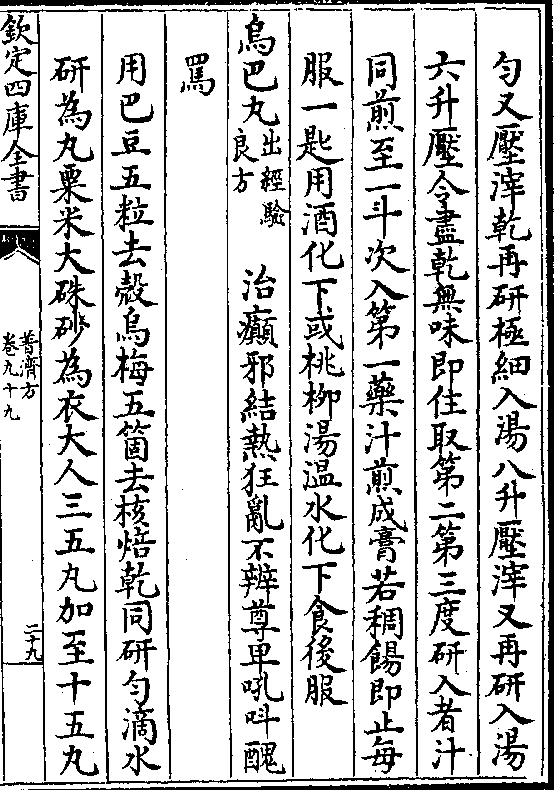 勻又壓滓乾再研極細入湯八升壓滓又再研入湯
六升壓令盡乾無味即住取第二第三度研入者汁
同煎至一斗次入第一藥汁煎成膏若稠餳即止每
服一匙用酒化下或桃柳湯温水化下食後服
烏巴丸出經驗良方　治癲邪結熱狂亂不辨尊卑吼呌醜
罵
用巴豆五粒去殼烏梅五箇去核焙乾同研勻滴水
研為丸粟米大硃砂為衣大人三五丸加至十五丸
欽定四庫全書
普濟方
卷九十九
二十九